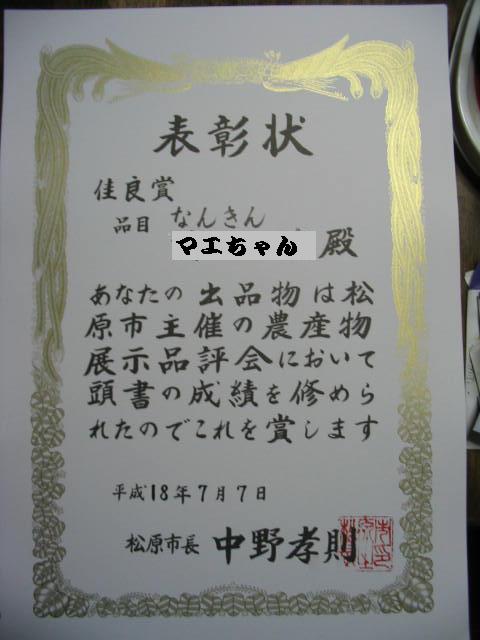 表彰状
佳良賞
品目 なんきん
マエちゃん 殿
あなたの出品物は松
原市主催の農産物
展示品評会において
頭書の成績を修めら
れたのでこれを賞します
平成18年7月7日
松原市長 中野孝則